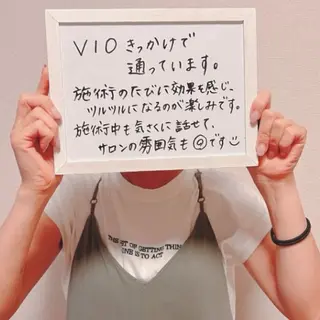 VIOきっかけで
通っています。
施術のたびに効果を感じ、
ツルツルになるのが楽しみです。
施術中も気さくに話せて、
サロンの雰囲気も◎です☺
THE ART OF GETTING THINGS
ONE IS TO ACT